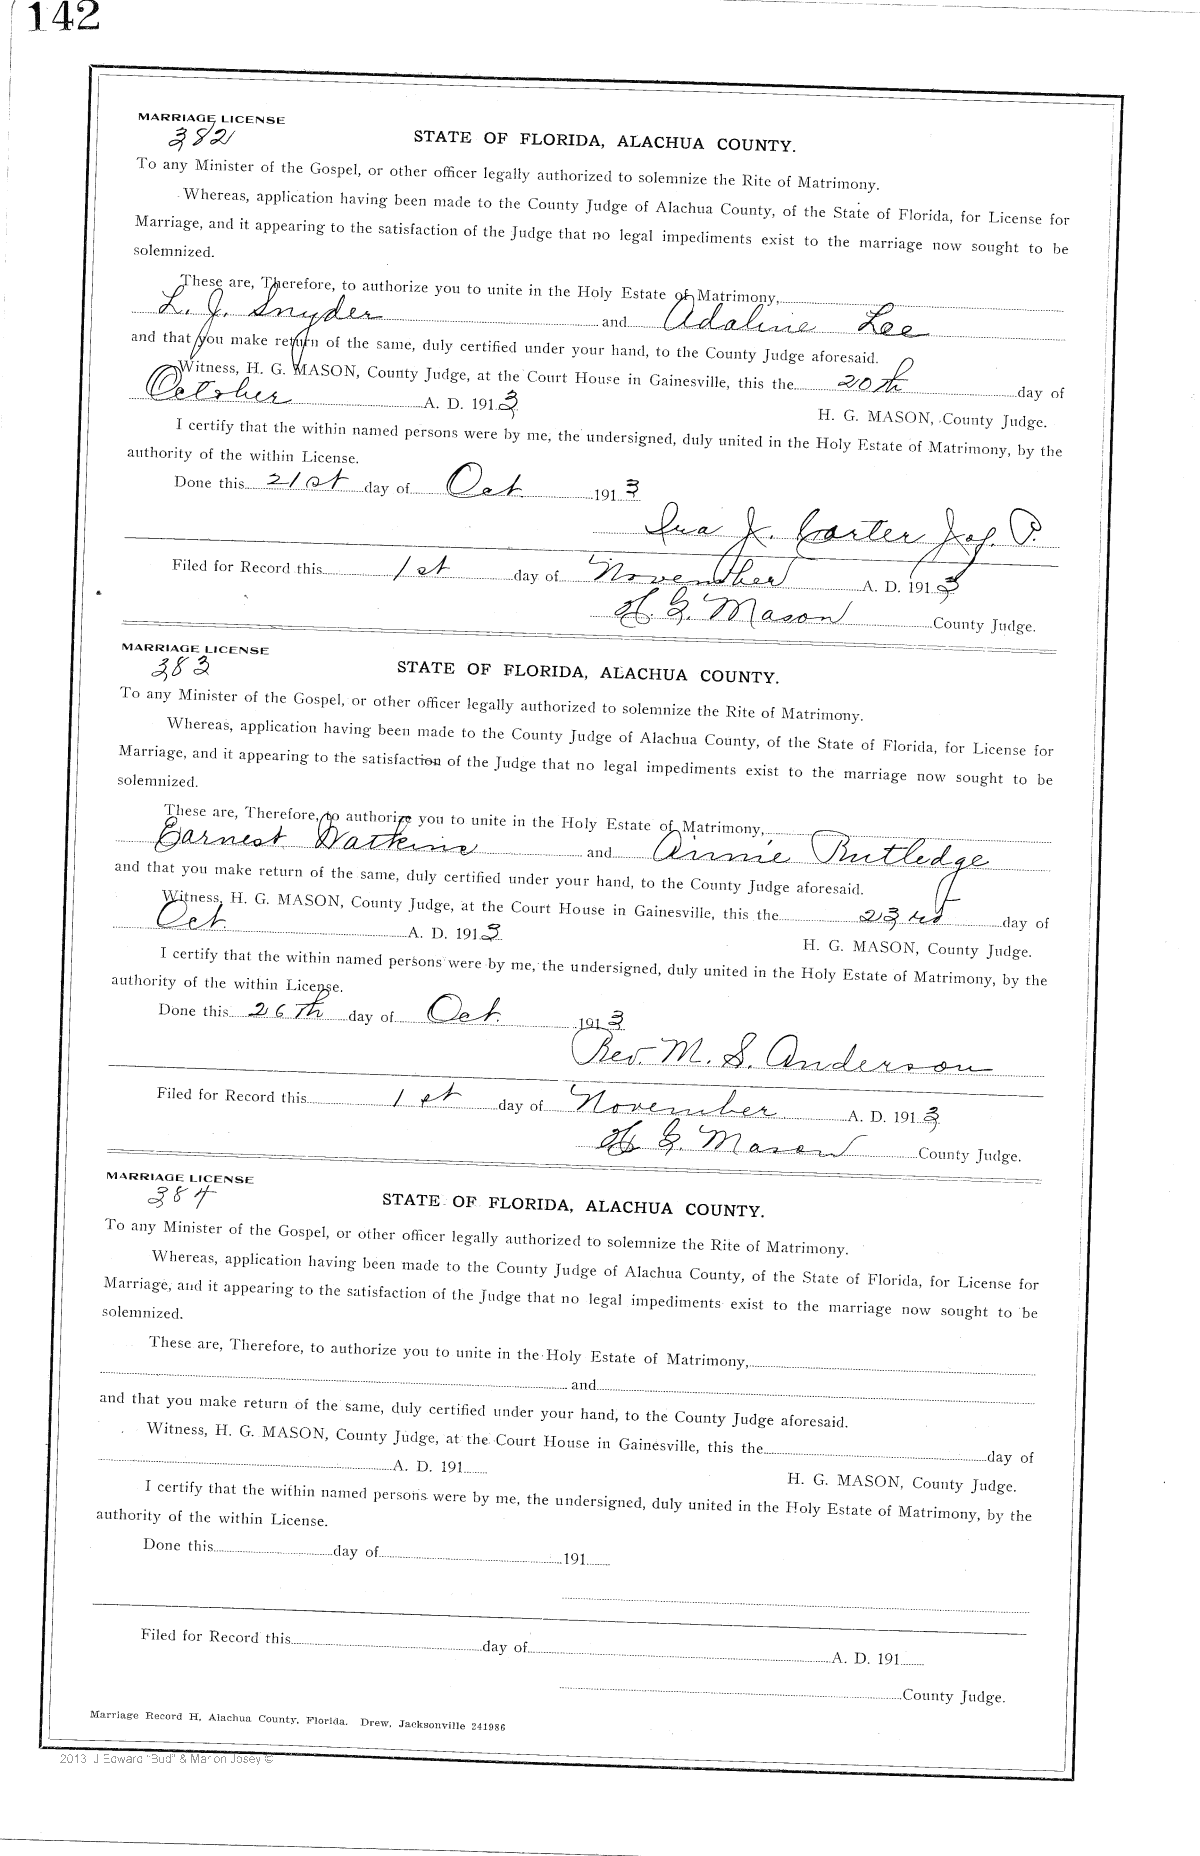 142
MARRIAGE LICENSE
382
STATE OF FLORIDA, ALACHUA COUNTY.
To any Minister of the Gospel, or other officer legally authorized to solemnize the Rite of Matrimony.
Whereas, application having been made to the County Judge of Alachua County, of the State of Florida, for License for
Marriage, and it appearing to the satisfaction of the Judge that no legal impediments exist to the marriage now sought to be
solemnized.
These are, Therefore, to authorize you to unite in the Holy Estate of Matrimony,
L. J. Snyder and Adaline Lee
and that you make return of the same, duly certified under your hand, to the County Judge aforesaid.
Witness, H. G. MASON, County Judge, at the Court House in Gainesville, this the 20th day of
October A. D. 1913
H. G. MASON, County Judge.
I certify that the within named persons were by me, the undersigned, duly united in the Holy Estate of Matrimony, by the
authority of the within License.
Done this 21st day of Oct 1913
Ira J. Carter J. of P.
Filed for Record this 1st day of November A. D. 1913
H. G. Mason County Judge.
MARRIAGE LICENSE
383
STATE OF FLORIDA, ALACHUA COUNTY.
To any Minister of the Gospel, or other officer legally authorized to solemnize the Rite of Matrimony.
Whereas, application having been made to the County Judge of Alachua County, of the State of Florida, for License for
Marriage, and it appearing to the satisfaction of the Judge that no legal impediments exist to the marriage now sought to be
solemnized.
These are, Therefore, to authorize you to unite in the Holy Estate of Matrimony,
Earnest Watkins and Annie Rutledge
and that you make return of the same, duly certified under your hand, to the County Judge aforesaid.
Witness, H. G. MASON, County Judge, at the Court House in Gainesville, this the 23rd day of
Oct. A. D. 1913
H. G. MASON, County Judge.
I certify that the within named persons were by me, the undersigned, duly united in the Holy Estate of Matrimony, by the
authority of the within License.
Done this 26th day of Oct. 1913
Rev. M. S. Anderson
Filed for Record this 1st day of November A. D. 1913
H G. Mason County Judge.
MARRIAGE LICENSE
384
STATE OF FLORIDA, ALACHUA COUNTY.
To any Minister of the Gospel, or other officer legally authorized to solemnize the Rite of Matrimony.
Whereas, application having been made to the County Judge of Alachua County, of the State of Florida, for License for
Marriage, and it appearing to the satisfaction of the Judge that no legal impediments exist to the marriage now sought to be
solemnized.
These are, Therefore, to authorize you to unite in the Holy Estate of Matrimony,
and
and that you make return of the same, duly certified under your hand, to the County Judge aforesaid.
Witness, H. G. MASON, County Judge, at the Court House in Gainesville, this the day of
A. D. 191
H. G. MASON, County Judge.
I certify that the within named persons were by me, the undersigned, duly united in the Holy Estate of Matrimony, by the
authority of the within License.
Done this day of 191
Filed for Record this day of A. D. 191
County Judge.
Marriage Record H, Alachua County, Florida. Drew, Jacksonville 241986
2013 J Edward "Bud" & Marion Josey ©